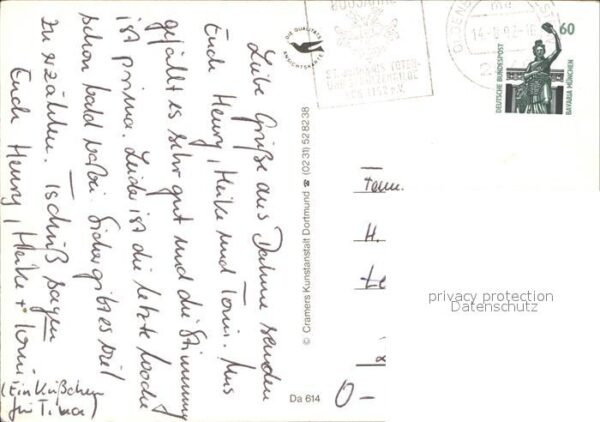 Liebe Grüße aus Dahme senden
Euch Henry, Heike und Toni. Uns
gefällt es sehr gut und die Stimmung
ist prima. Leider ist die letzte Woche
schon bald vorbei. Sicher gibt es viel
zu erzählen. Tschüß sagen
Euch Henry, Heike + Toni
(Ein Küßchen
für Tima)
DIE QUALITÄTS
ANSICHTSKARTE
© Cramers Kunstanstalt Dortmund ☎ (0231) 52 82 38
Da 614
OLDENB
60
DEUTSCHE BUNDESPOST
BAVARIA MÜNCHEN
Fam.
H.
O-
privacy protection
Datenschutz